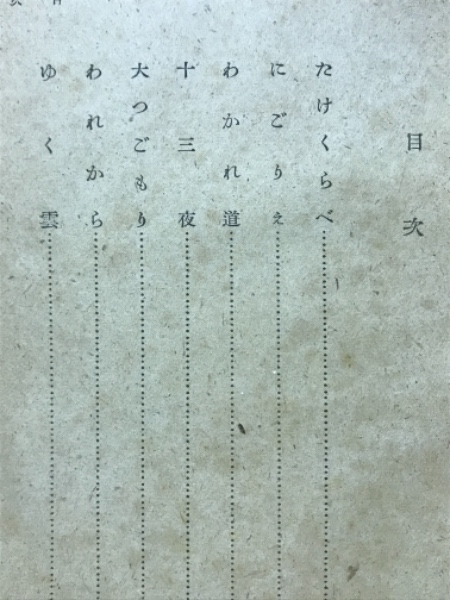 目次
たけくらべ
にごりえ
わかれ道
十三夜
大つごもり
われから
ゆく雲